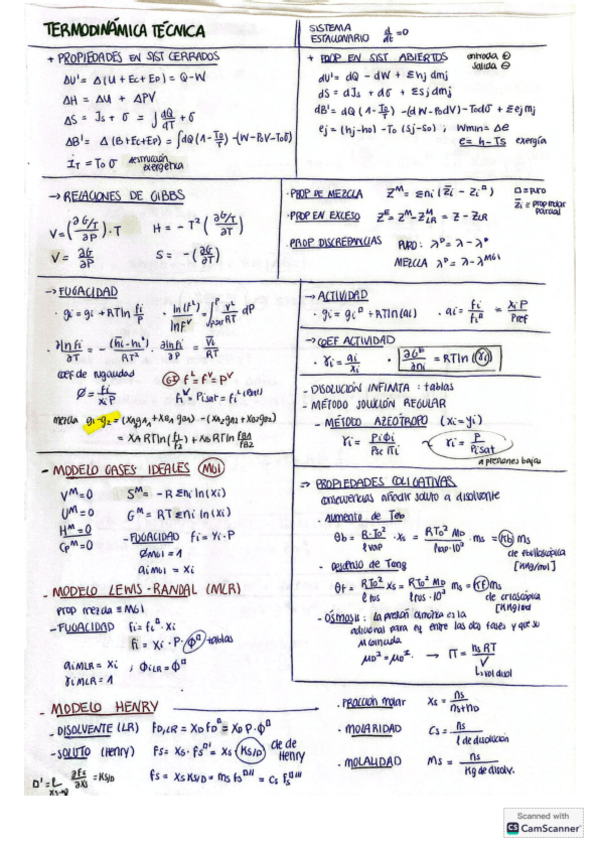 TERMODINÁMICA TÉCNICA
SISTEMA ESTACIONARIO d/dt =0
+ PROPIEDADES EN SIST CERRADOS
ΔU' = Δ(U+Ec+Ep) = Q-W
ΔH = ΔU + ΔPV
ΔS = Js + σ = ∫ dQ/dT + σ
ΔB' = Δ(B+Ec+Ep) = ∫dQ(1-To/T) -(W-PoV-Toσ)
İT = Toσ destrucción exergética
+ PROP EN SIST ABIERTOS
entrada ⊕
salida ⊖
dU' = dQ - dW + Σhj dmj
dS = dJs + dσ + Σsj dmj
dB' = dQ (1-To/T) -(dW-PodV)-Todσ + Σej mj
ej = (hj-ho) -To (sj-so) ; Wmin= Δe
e= h-Ts exergía
→ RELACIONES DE GIBBS
V=(∂G/T / ∂P)·T H = -T² (∂G/T / ∂T)
V = ∂G/∂P S = -(∂G/∂T)
· PROP DE MEZCLA Z^M = Σni (Z̄i - Zi^□) □=puro
Z̄i = prop molar parcial
· PROP EN EXCESO Z^E = Z^M - Z^M_LR = Z - Z_LR
· PROP DISCREPANCIAS PURO: λ^D = λ - λ^*
MEZCLA λ^D = λ - λ^MGI
→ FUGACIDAD
· gi = gi + RTln fi/fi · ln(F^L)/lnF^V = ∫ V/RT dP
· ∂lnfi/∂T = -(h̄i-hi°)/RT² · ∂lnfi/∂P = V̄i/RT
coef de fugacidad
Ø = fi/xiP
GI f^L = f^V = P^V
fi^V = Pisat = fi^L (Pisat)
mezcla g1-g2 = (XAgA1 + XB gB1) -(XAgA2 + XBgB2)
= XA RTln(f1/f2) + XB RTln fB1/fB2
→ ACTIVIDAD
· gi = gi^□ + RTln(ai) · ai = fi/fi^□ = xiP/Pref
→ COEF ACTIVIDAD
· γi = ai/xi · ∂G^E/∂ni = RTln(γi)
- DISOLUCIÓN INFINITA : tablas
- MÉTODO SOLUCIÓN REGULAR
- MÉTODO AZEÓTROPO (xi=yi)
γi = γi = P/Pisat
a presiones bajas
- MODELO GASES IDEALES (MGI)
V^M=0 S^M = -R Σni ln(xi)
U^M=0 G^M = RT Σni ln(xi)
H^M=0 -FUGACIDAD fi = yi·P
Cp^M=0 ØMGI = 1
ai MGI = xi
- MODELO LEWIS-RANDAL (MLR)
prop mezcla ≡ MGI
-FUGACIDAD fi = fi^□ · xi
fi = xi · P · Φ^□ tablas
aiMLR = xi ; ϕiLR = Φ^□
γiMLR = 1
⇒ PROPIEDADES COLIGATIVAS
consecuencias añadir soluto a disolvente
· Aumento de Teb
θb = R·To²/lvap · xs = RTo² MD/lvap·10³ · ms = Kb ms
cte de ebulloscópica
[Kkg/mol]
- Descenso de Tcong
θf = RTo²/lfus Xs = RTo² MD/lfus·10³ ms = Kf ms
cte de crioscópica
[Kkg/mol]
- ÓSMOSIS : La presión osmótica es la
adicional para eq entre las dos fases y que su
μ coincida
μD¹ = μD² → Π = ns RT/V
vol disol
- MODELO HENRY
- DISOLVENTE (LR) FD,LR = XD fD^□ = XD P·Φ^□
-SOLUTO (Henry) Fs = Xs · fs^□' = Xs Ks/D cte de Henry
fs = Xs Ks/D = ms fs^□'' = Cs fs^□'''
∂fs/∂xs = Ks/D
· FRACCIÓN molar Xs = ns/ns+nD
· MOLARIDAD Cs = ns/l de disolución
· MOLALIDAD Ms = ns/Kg de disolv.
Scanned with
CS CamScanner